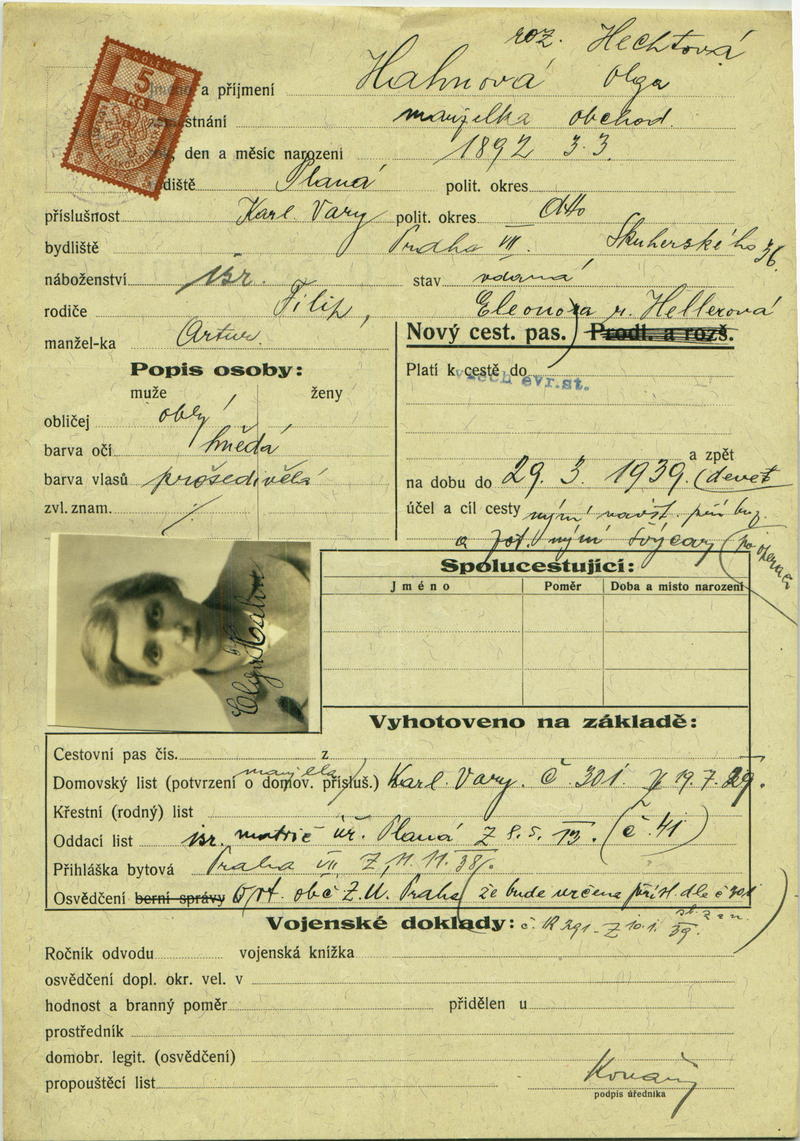 roz. Hechtová
KOLEK
5
Kč
a příjmení Hahnová Olga
manželka obchod.
den a měsíc narození 1892 3.3.
Planá polit. okres
příslušnost Karl. Vary polit. okres dtto
bydliště Praha VII. Skuherského 36.
náboženství isr. stav vdaná
rodiče Filip, Eleonora r. Hellerová
manžel-ka Artur.
Nový cest. pas. Prodl. a rozš.
Popis osoby:
muže ženy
Platí k cestě do všech evr. st.
obličej oblý
barva očí hnědá
barva vlasů prošedivělá
zvl. znam.
a zpět
na dobu do 29. 3. 1939. (devět
účel a cíl cesty nyní
a nyní Švýcary
Olga Hahn
Spolucestující:
Jméno Poměr Doba a místo narození
Vyhotoveno na základě:
Cestovní pas čís. z
manžela
Domovský list (potvrzení o domov. přísluš.) Karl. Vary. č 301. 19.7.29.
Křestní (rodný) list
Oddací list isr. matrič úř. Planá z 8.5. 13. (č. 41)
Přihláška bytová Praha VII z 11.11.38.
Osvědčení berní správy obč Z.U. Praha (že bude určena přísl. dle č
Vojenské doklady:
Ročník odvodu vojenská knížka
osvědčení dopl. okr. vel. v
hodnost a branný poměr přidělen u
prostředník
domobr. legit. (osvědčení)
propouštěcí list
podpis úředníka